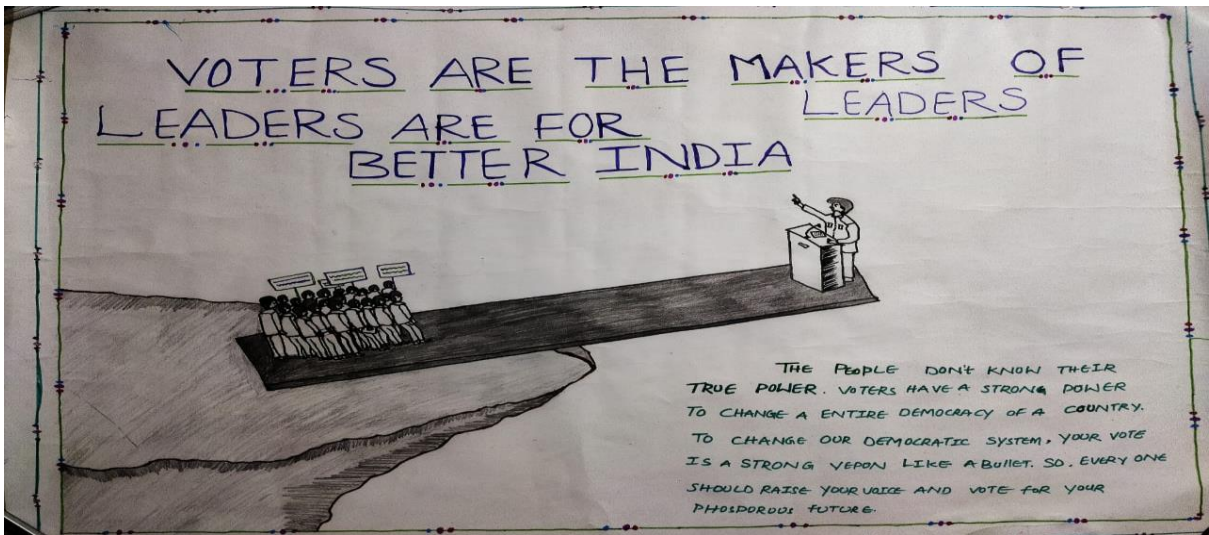 VOTERS ARE THE MAKERS OF
LEADERS
LEADERS ARE FOR
BETTER INDIA
THE PEOPLE DON'T KNOW THEIR
TRUE POWER. VOTERS HAVE A STRONG POWER
TO CHANGE A ENTIRE DEMOCRACY OF A COUNTRY.
TO CHANGE OUR DEMOCRATIC SYSTEM, YOUR VOTE
IS A STRONG VEPON LIKE A BUllET. SO, EVERY ONE
SHOULD RAISE YOUR VOICE AND VOTE foR YOUR
PHOSPOROUS fUTURE.